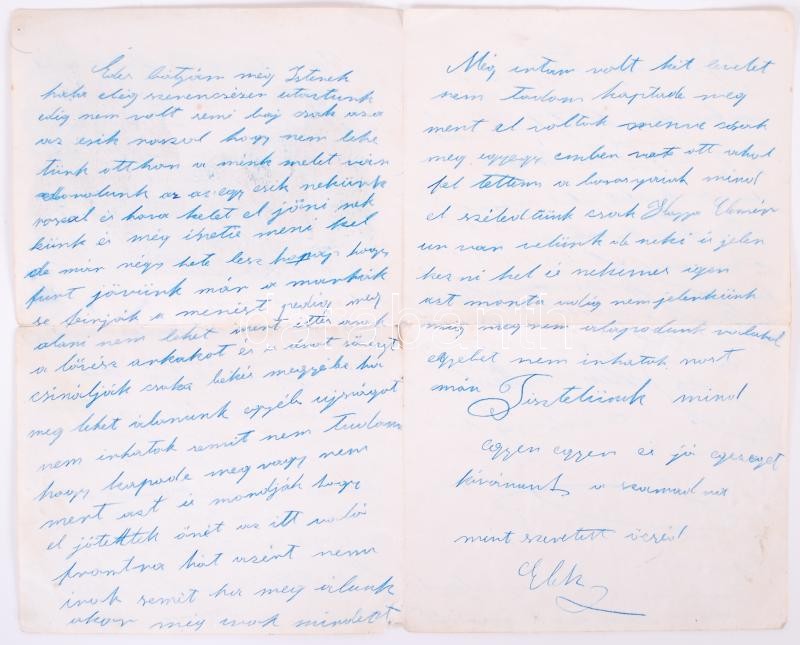 Édes bátyám még Istenek
hála elég szerencsésen utaztunk
edig nem volt semi baj csak az a
az esik roszul hogy nem lehe
tünk otthon a mink melet ván
dorolunk az az egy esik nekünk
roszul és hova kelet el jöni nek
künk és még isetis meni kel
de már négy hete lesz hogy
furt jövünk már a marhák
se birják a menést pedig meg
alani nem lehet mert ettis csak
a lövész árkakot és a
csinálják csaka békés megyébe ha
meg lehet álanunk egyéb ujságot
nem irhatok semit nem tudom
hogy kapade meg vagy nem
mert azt is mondják hogy
el jötettek önét az itt való
frontra hát azért nem
irok semit ha meg álunk
akor még irok mindetet.
Még irtam volt két levelet
nem tudom kaptade meg
ment el voltak menve csak
meg egyegy ember vot ott ahol
fel tettem a mind
el széledtünk csak
ur van velünk de neki is jelen
kezni kel és nekemes igen
azt monta adig nem jelenkzünk
míg meg nem álapodunk valahol
egyebet nem irhatok most
mán Tisztelünk mind
egyen egyen és jó egeseget
kivánunk a
mint szeretett öcséd
Elek
darabanth